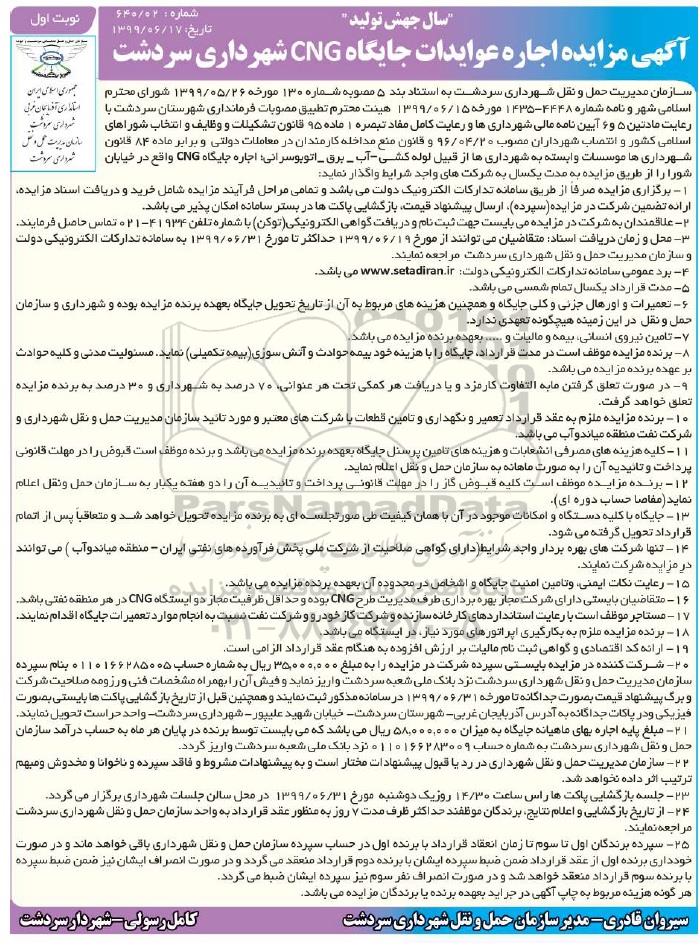 "سال جهش تولید"
شماره : ۶۴۰/۰۲
تاریخ: ۱۳۹۹/۰۶/۱۷
نوبت اول
آگهی مزایده اجاره عوایدات جایگاه CNG شهرداری سردشت
جمهوری اسلامی ایران
استانداری آذربایجان غربی
شهرداری سردشت
سازمان مدیریت حمل و نقل
شهرداری سردشت
سـازمان مدیریت حمل و نقل شهـرداری سردشـت به استناد بند ۵ مصوبه شماره ۱۳۰ مورخه ۱۳۹۹/۰۵/۲۶ شورای محترم
اسلامی شهر و نامه شماره ۴۴۴۸-۱۴۳۵ مورخه ۱۳۹۹/۰۶/۱۵ هیئت محترم تطبیق مصوبات فرمانداری شهرستان سردشت با
رعایت مادتین ۵ و۶ آیین نامه مالی شهرداری ها و رعایت کامل مفاد تبصره ۱ ماده ۹۵ قانون تشکیلات و وظایف و انتخاب شوراهای
اسلامی کشور و انتصاب شهرداران مصوب ۹۶/۰۴/۲۰ و قانون منع مداخله کارمندان در معاملات دولتی و برابر ماده ۸۴ قانون
شهـرداری ها موسسات وابسته به شهرداری ها از قبیل لوله کشـی-آب _ برق _اتوبوسرانی؛ اجاره جایگاه CNG واقع در خیابان
شورا را از طریق مزایده به مدت یکسال به شرکت های واجد شرایط واگذار نماید:
۱- برگزاری مزایده صرفاً از طریق سامانه تدارکات الکترونیک دولت می باشد و تمامی مراحل فرآیند مزایده شامل خرید و دریافت اسناد مزایده،
ارائه تضمین شرکت در مزایده(سپرده)، ارسال پیشنهاد قیمت، بازگشایی پاکت ها در بستر سامانه امکان پذیر می باشد.
۲- علاقمندان به شرکت در مزایده می بایست جهت ثبت نام و دریافت گواهی الکترونیکی(توکن) با شماره تلفن ۴۱۹۳۴-۰۲۱ تماس حاصل فرمایند.
۳- محل و زمان دریافت اسناد: متقاضیان می توانند از مورخ ۱۳۹۹/۰۶/۱۹ حداکثر تا مورخ ۱۳۹۹/۰۶/۳۱ به سامانه تدارکات الکترونیکی دولت
و سازمان مدیریت حمل و نقل شهرداری سردشت مراجعه نمایند.
۴- برد عمومی سامانه تدارکات الکترونیکی دولت: www.setadiran.ir می باشد.
۵- مدت قرارداد یکسال تمام شمسی می باشد.
۶- تعمیرات و اورهال جزئی و کلی جایگاه و همچنین هزینه های مربوط به آن از تاریخ تحویل جایگاه بعهده برنده مزایده بوده و شهرداری و سازمان
حمل و نقل در این زمینه هیچگونه تعهدی ندارد.
۷- تامین نیروی انسانی، بیمه و مالیات و ..... بعهده برنده مزایده می باشد.
۸- برنده مزایده موظف است در مدت قرارداد، جایگاه را با هزینه خود بیمه حوادث و آتش سوزی(بیمه تکمیلی) نماید. مسئولیت مدنی و کلیه حوادث
بر عهده برنده مزایده می باشد.
۹- در صورت تعلق گرفتن مابه التفاوت کارمزد و یا دریافت هر کمکی تحت هر عنوانی، ۷۰ درصد به شهـرداری و ۳۰ درصد به برنده مزایده
تعلق خواهد گرفت.
۱۰- برنده مزایده ملزم به عقد قرارداد تعمیر و نگهداری و تامین قطعات با شرکت های معتبر و مورد تائید سازمان مدیریت حمل و نقل شهرداری و
شرکت نفت منطقه میاندوآب می باشد.
۱۱-کلیه هزینه های مصرفی انشعابات و هزینه های تامین پرسنل جایگاه بعهده برنده مزایده می باشد و برنده موظف است قبوض را در مهلت قانونی
پرداخت و تائیدیه آن را به صورت ماهانه به سازمان حمل و نقل اعلام نماید.
۱۲- برنـده مزایـده موظف اسـت کلیه قبـوض گاز را در مهلت قانونـی پرداخت و تائیدیـه آن را دو هفته یکبار به سـازمان حمل ونقل اعلام
نماید(مفاصا حساب دوره ای).
۱۳- جایگاه با کلیه دسـتگاه و امکانات موجود در آن با همان کیفیت طی صورتجلسـه ای به برنده مزایده تحویل خواهد شـد و متعاقباً پس از اتمام
قرارداد تحویل گرفته می شود.
۱۴- تنها شرکت های بهره بردار واجد شرایط(دارای گواهی صلاحیت از شرکت ملی پخش فرآورده های نفتی ایران - منطقه میاندوآب ) می توانند
در مزایده شرکت نمایند.
۱۵- رعایت نکات ایمنی، وتامین امنیت جایگاه و اشخاص در محدوده آن بعهده برنده مزایده می باشد.
۱۶- متقاضیان بایستی دارای شرکت مجاز بهره برداری طرف مدیریت طرح CNG بوده و حداقل ظرفیت مجاز دو ایستگاه CNG در هر منطقه نفتی باشد.
۱۷- مستاجر موظف است با رعایت استانداردهای کارخانه سازنده و شرکت گاز خودرو و شرکت نفت نسبت به انجام موارد تعمیرات جایگاه اقدام نمایند.
۱۸- برنده مزایده ملزم به بکارگیری اپراتورهای مورد نیاز، در ایستگاه می باشد.
۱۹- ارائه کد اقتصادی و گواهی ثبت نام مالیات بر ارزش افزوده به هنگام عقد قرارداد الزامی است.
۲۰- شـرکت کننده در مزایده بایستی سپرده شرکت در مزایده را به مبلغ ۳۵,۰۰۰,۰۰۰ ریال به شماره حساب ۰۱۱۰۱۶۶۲۸۵۰۰۵ بنام سپرده
سازمان مدیریت حمل و نقل شهرداری سردشت نزد بانک ملی شعبه سردشت واریز نماید و فیش آن را بهمراه مشخصات فنی و رزومه صلاحیت شرکت
و برگ پیشنهاد قیمت بصورت جداگانه تا مورخه ۱۳۹۹/۰۶/۳۱ در سامانه مذکور ثبت نمایند و همچنین قبل از تاریخ بازگشایی پاکت ها بایستی بصورت
فیزیکی ودر پاکات جداگانه به آدرس آذربایجان غربی- شهرستان سردشت- خیابان شهید علیپور - شهرداری سردشت- واحد حراست تحویل نمایند.
۲۱- مبلغ پایه اجاره بهای ماهیانه جایگاه به میزان ۵۸,۰۰۰,۰۰۰ ریال می باشد که می بایست توسط برنده در پایان هر ماه به حساب درآمد سازمان
حمل و نقل شهرداری سردشت به شماره حساب ۰۱۱۰۱۶۶۲۸۳۰۰۹ نزد بانک ملی شعبه سردشت واریز گردد.
۲۲- سازمان مدیریت حمل و نقل شهرداری در رد یا قبول پیشنهادات مختار است و به پیشنهادات مشروط و فاقد سپرده و ناخوانا و مخدوش ومبهم
ترتیب اثر داده نخواهد شد.
۲۳- جلسه بازگشایی پاکت ها راس ساعت ۱۴/۳۰ روز یک دوشنبه مورخ ۱۳۹۹/۰۶/۳۱ در محل سالن جلسات شهرداری برگزار می گردد.
۲۴- از تاریخ بازگشایی و اعلام نتایج، برندگان موظفند حداکثر ظرف مدت ۷ روز به منظور عقد قرارداد به واحد سازمان حمل و نقل شهرداری سردشت
مراجعه نمایند.
۲۵- سپرده برندگان اول تا سوم تا زمان انعقاد قرارداد با برنده اول در حساب سپرده سازمان حمل و نقل شهرداری باقی خواهد ماند و در صورت
خودداری برنده اول از عقد قرارداد ضمن ضبط سپرده ایشان با برنده دوم قرارداد منعقد می گردد و در صورت انصراف ایشان نیز ضمن ضبط سپرده
با برنده سوم قرارداد منعقد خواهد شد و در صورت انصراف نفر سوم نیز سپرده ایشان ضبط می گردد.
هر گونه هزینه مربوط به چاپ آگهی در جراید بعهده برنده یا برندگان مزایده می باشد.
سیروان قادری - مدیر سازمان حمل و نقل شهرداری سردشت
کامل رسولی - شهردار سردشت
ParsNamadData